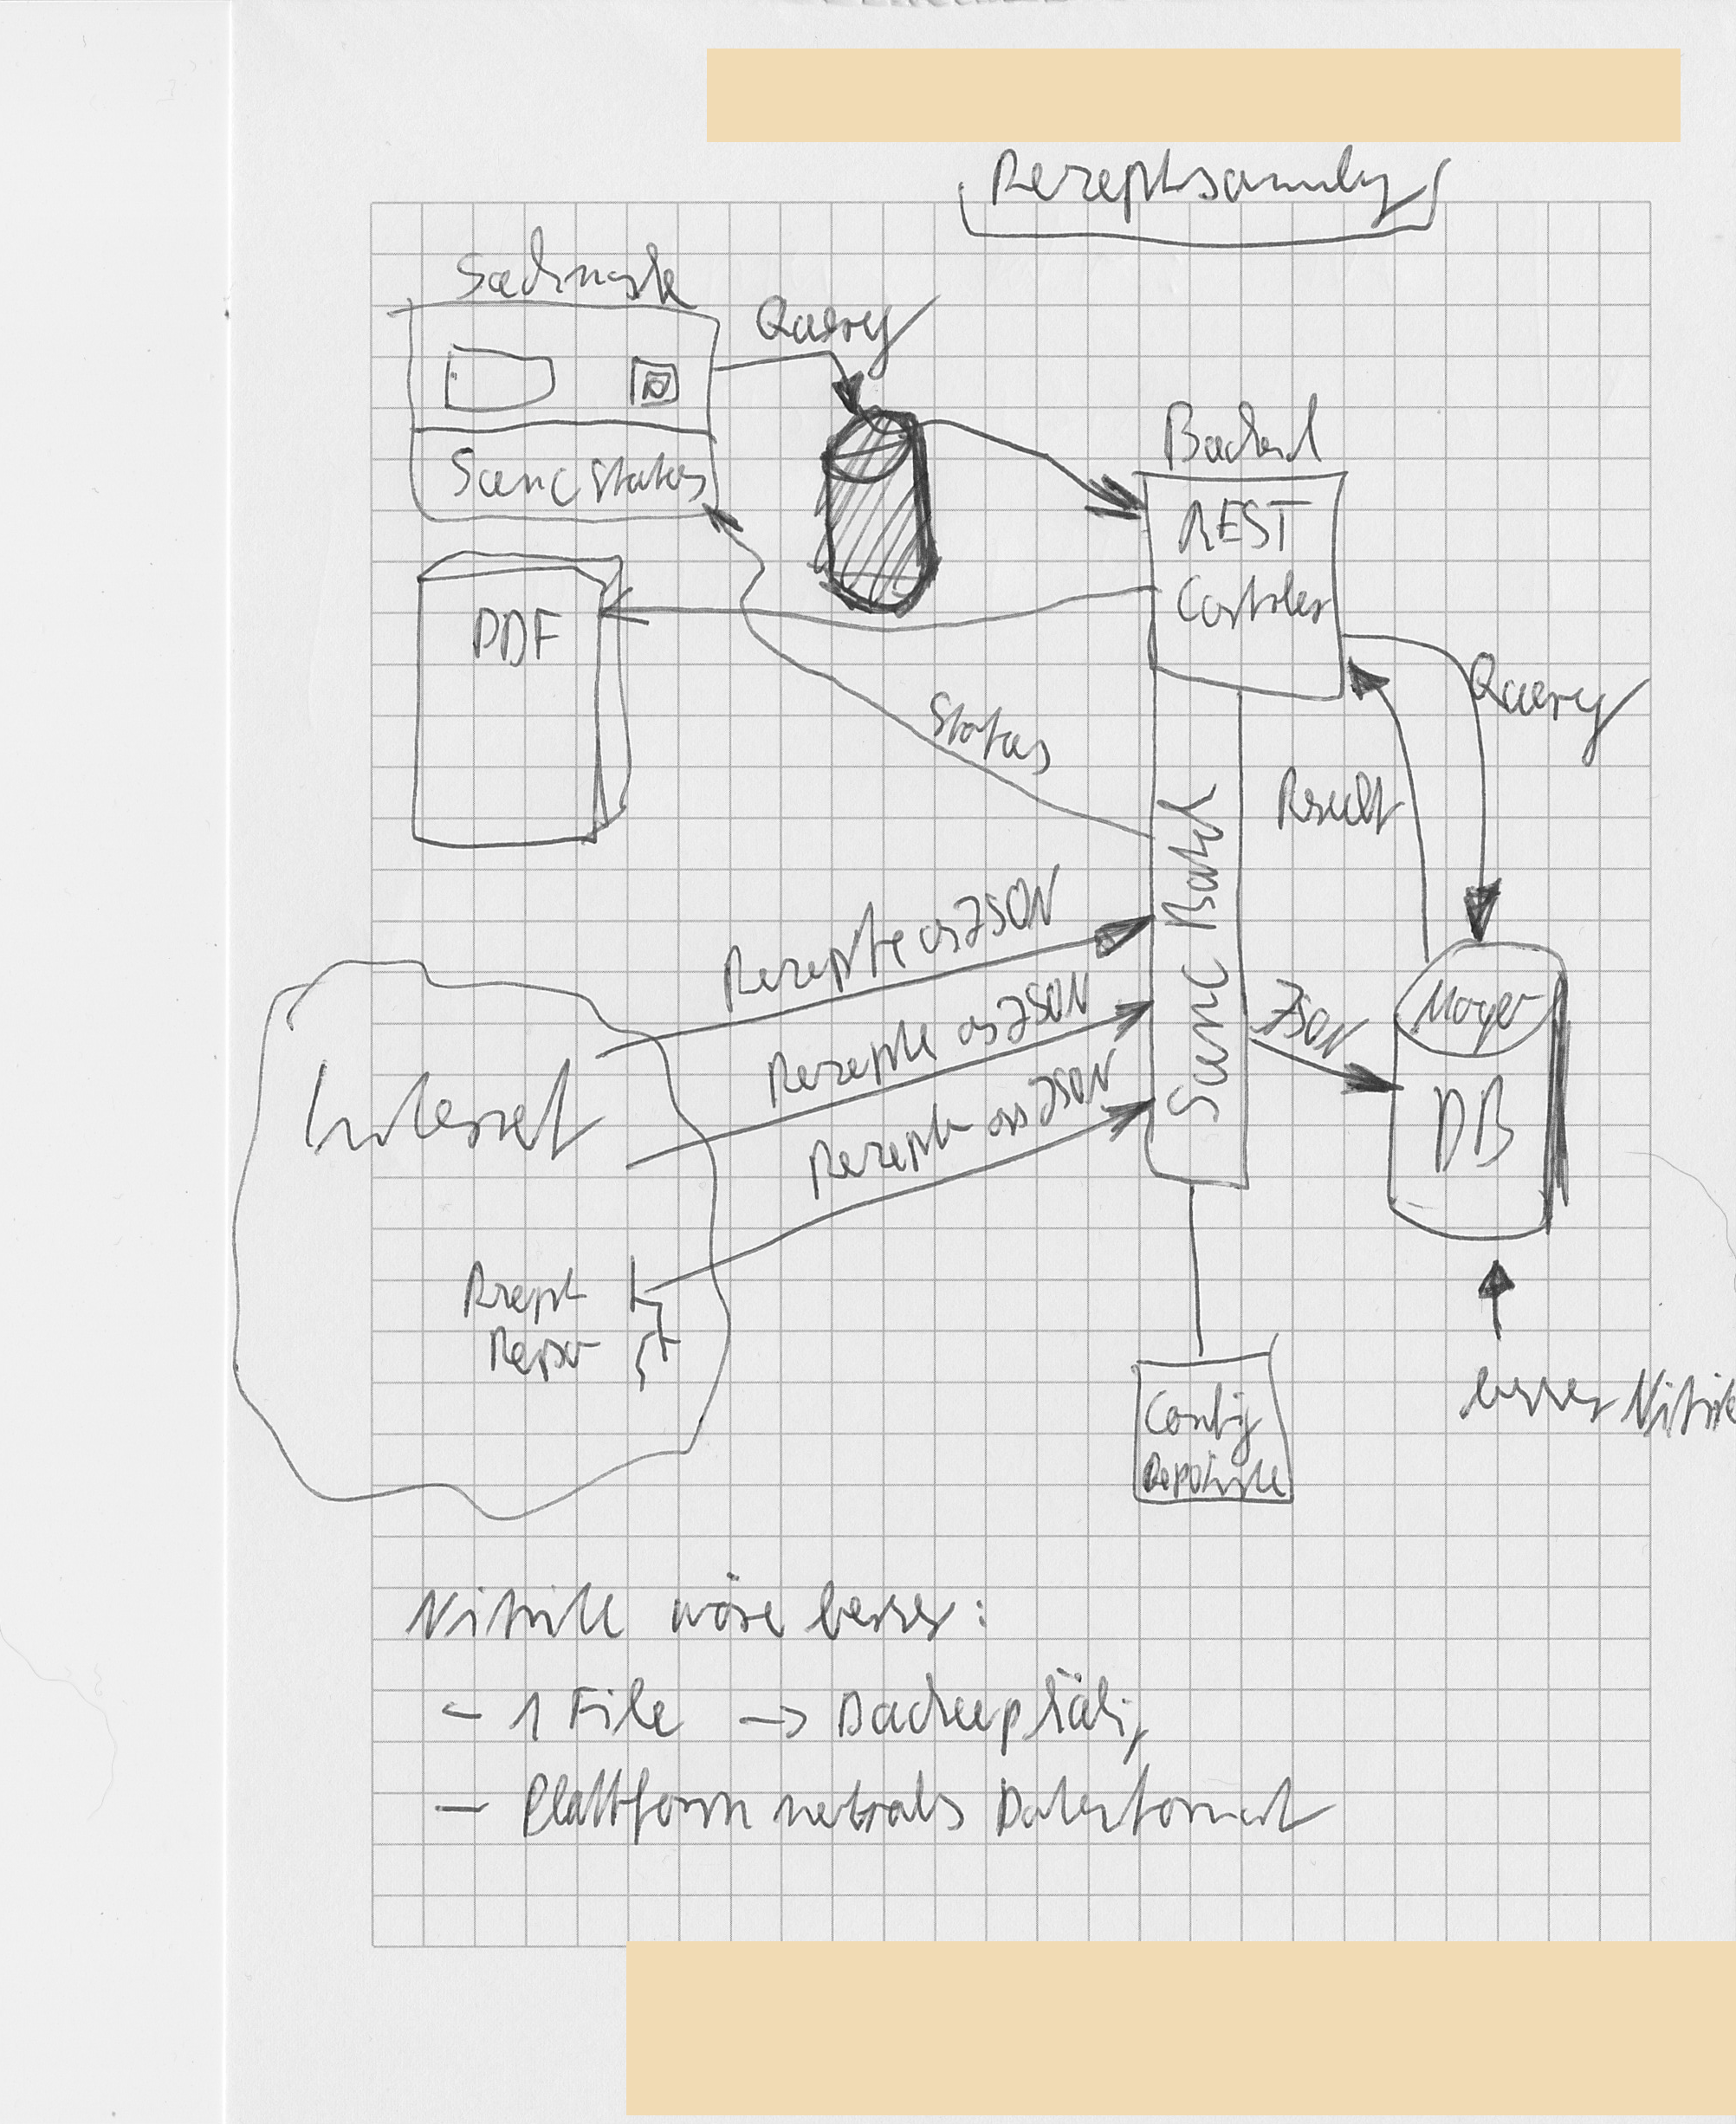 Rezeptsammlung
Suchmaske
Query
Sync Status
Backend
REST
Controller
PDF
Query
Status
Result
Sync Batch
Rezepte as JSON
Rezepte as JSON
Rezepte as JSON
JSON
DB
Internet
Rezept
Config
besser Nitrite
Nitrite wäre besser:
- 1 File → Backupfähig
- Plattform neutrales Datenformat